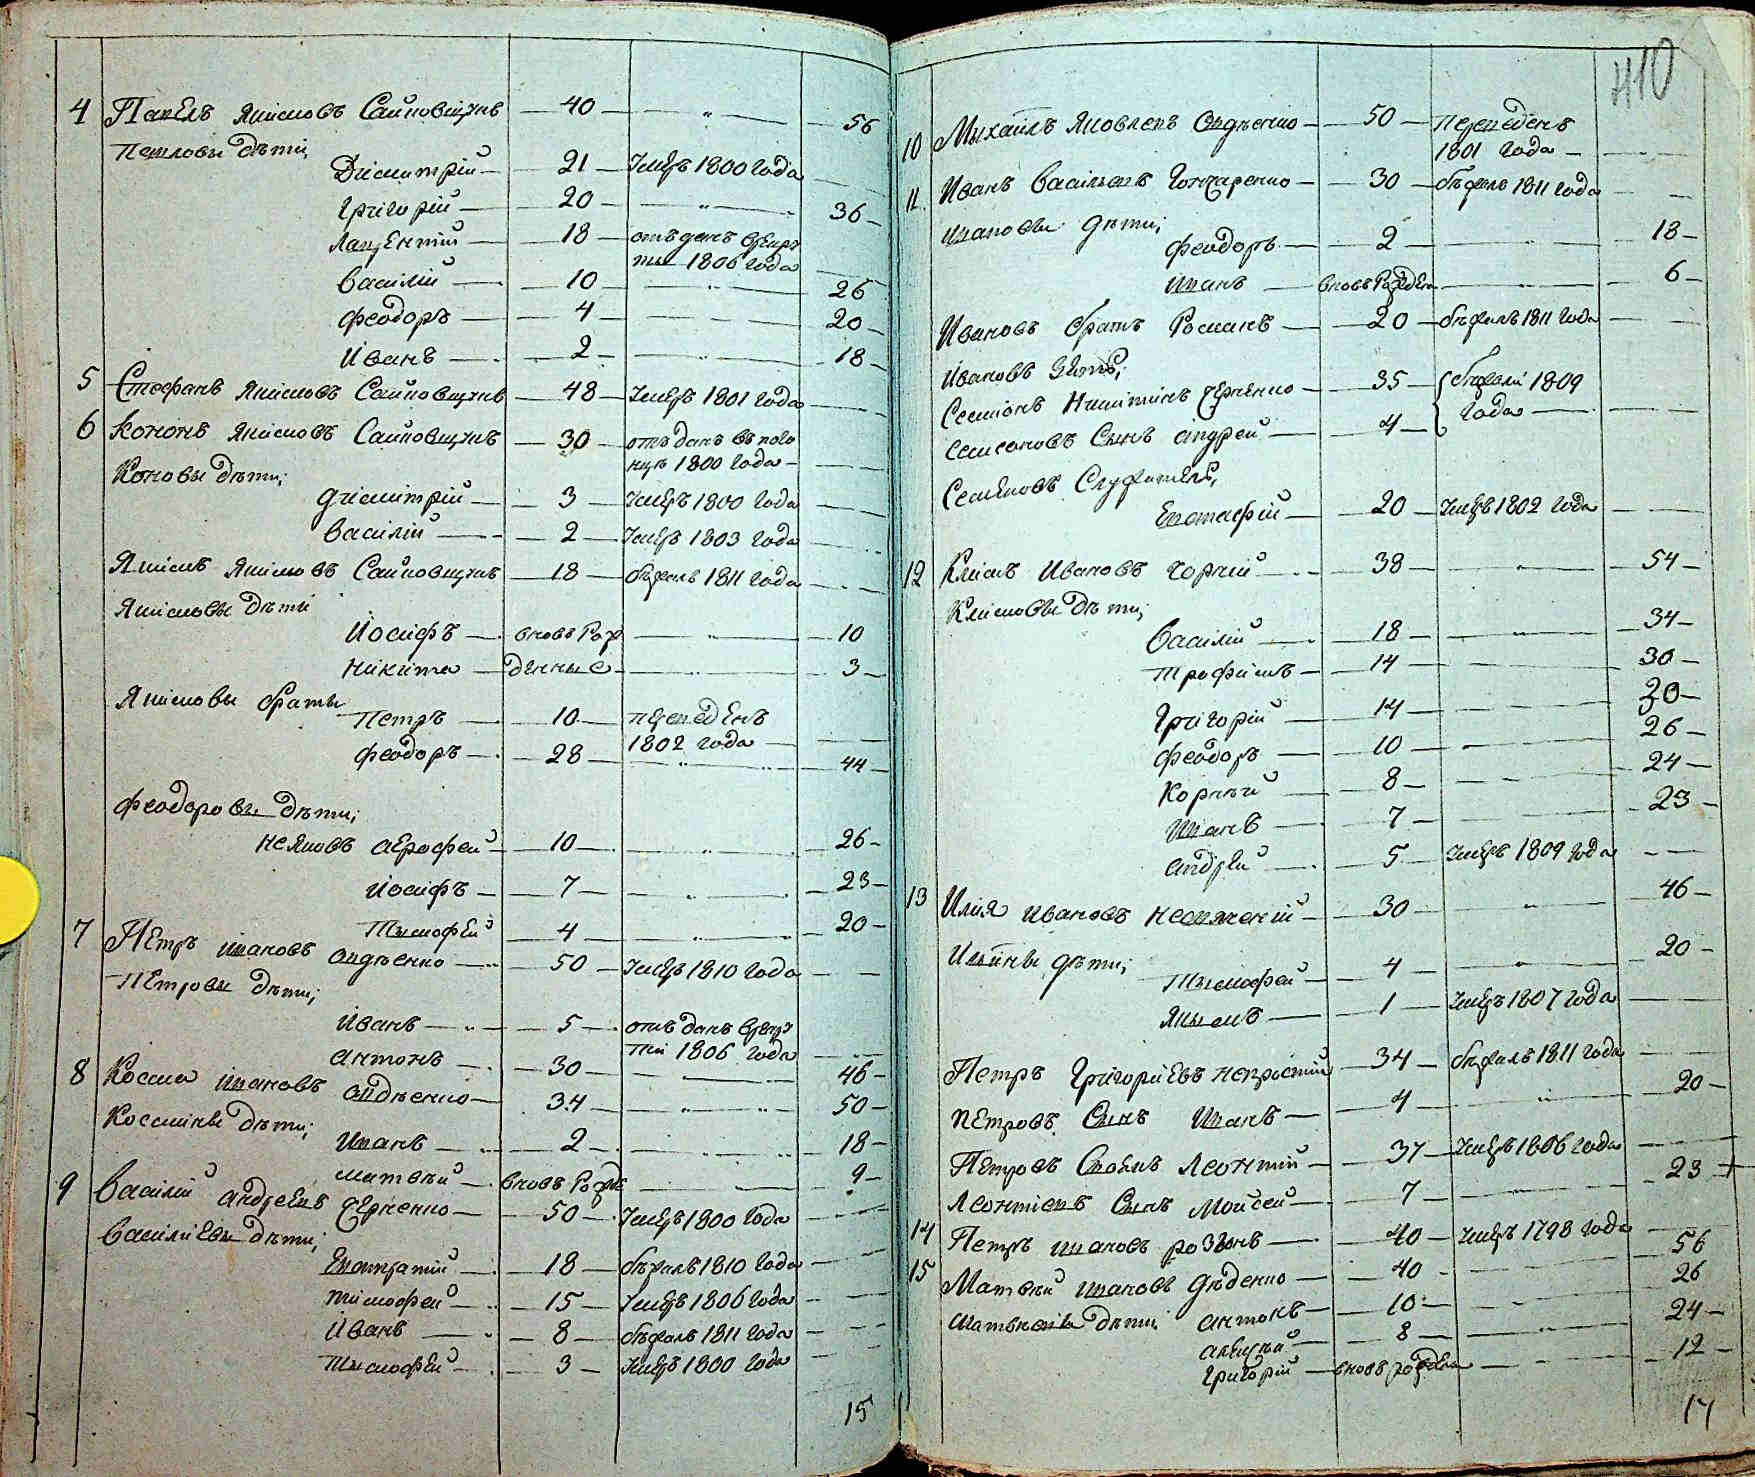 4 Павелъ Якимовъ Сайковщукъ — 40 — „ — 56
Павловы дѣти;
Дісмитрій — 21 — Умеръ 1800 года
Григорій — 20 — „ — 36
Лаврентій — 18 — отъданъ врекру
ты 1806 года
Василій — 10 — „ — 26
Феодоръ — 4 — 20
Иванъ — 2 — 18
5 Стефанъ Якимовъ Сайковщукъ — 48 — Умеръ 1801 года
6 Кононъ Якимовъ Сайковщукъ — 30 — отъданъ въ
1800 года
Коновы дѣти;
Дісмитрій — 3 — Умеръ 1800 года
Василій — 2 — Умеръ 1803 года
Якимъ Якимовъ Сайковщукъ — 18 — бѣжалъ 1811 года
Якимовы дѣти
Йосифъ — вновь Рож — „ — 10
Никита — денные — 3
Якимовы браты
Петръ — 10 — переведенъ
1802 года
Феодоръ — 28 — „ — 44
Феодоровы дѣти;
Ерофей — 10 — „ — 26
Йосифъ — 7 — „ — 23
Тымофей — 4 — „ — 20
7 Петръ Ивановъ — 50 — Умеръ 1810 года
Петровы дѣти;
Иванъ — 5 — отъданъ врекру
ты 1806 года
Антонъ — 30 — 46
8 Косма Ивановъ — 34 — „ — 50
Космины дѣти;
Иванъ — 2 — 18
Матвѣй — вновь Рожде — 9
9 Василій Андреевъ Черненко — 50 — Умеръ 1800 года
Василіевы дѣти;
Евстратій — 18 — бѣжалъ 1810 года
Тимофей — 15 — Умеръ 1806 года
Иванъ — 8 — бѣжалъ 1811 года
Тымофей — 3 — Умеръ 1800 года
15
410
10 Михайлъ Яковлевъ — 50 — Переведенъ
1801 года
11 Иванъ Васильевъ Гончаренко — 30 — бѣжалъ 1811 года
Ивановы дѣти;
Феодоръ — 2 — 18
Иванъ — вновь Рожден — 6
Ивановъ братъ Романъ — 20 — бѣжалъ 1811 года
Ивановъ зять;
Семіонъ Никитинъ Черненко — 35 — бѣжали 1809
года
Семіоновъ Сынъ Андрей — 4
Семеновъ
Евстафій — 20 — Умеръ 1802 года
12 Климъ Ивановъ Чорній — 38 — „ — 54
Климовы дѣти;
Василій — 18 — „ — 34
Трофимъ — 14 — 30
Григорій — 14 — 30
Феодоръ — 10 — 26
Корнѣй — 8 — 24
Иванъ — 7 — 23
Андрей — 5 — Умеръ 1809 года
13 Илия Ивановъ — 30 — „ — 46
Ильины дѣти;
Тымофей — 4 — „ — 20
Якымъ — 1 — Умеръ 1807 года
Петръ Григоріевъ Непростій — 34 — бѣжалъ 1811 года
Петровъ Сынъ Иванъ — 4 — „ — 20
Петровъ Своякъ Леонтій — 37 — Умеръ 1806 года
Леонтіевъ Сынъ Мойсей — 7 — 23
14 Петръ Ивановъ — 40 — Умеръ 1798 года
15 Матвѣй Ивановъ Дѣденко — 40 — 56
Матвѣевы дѣти Антонъ — 10 — 26
Алексѣй — 8 — 24
Григорій — вновь рожден — 12
17